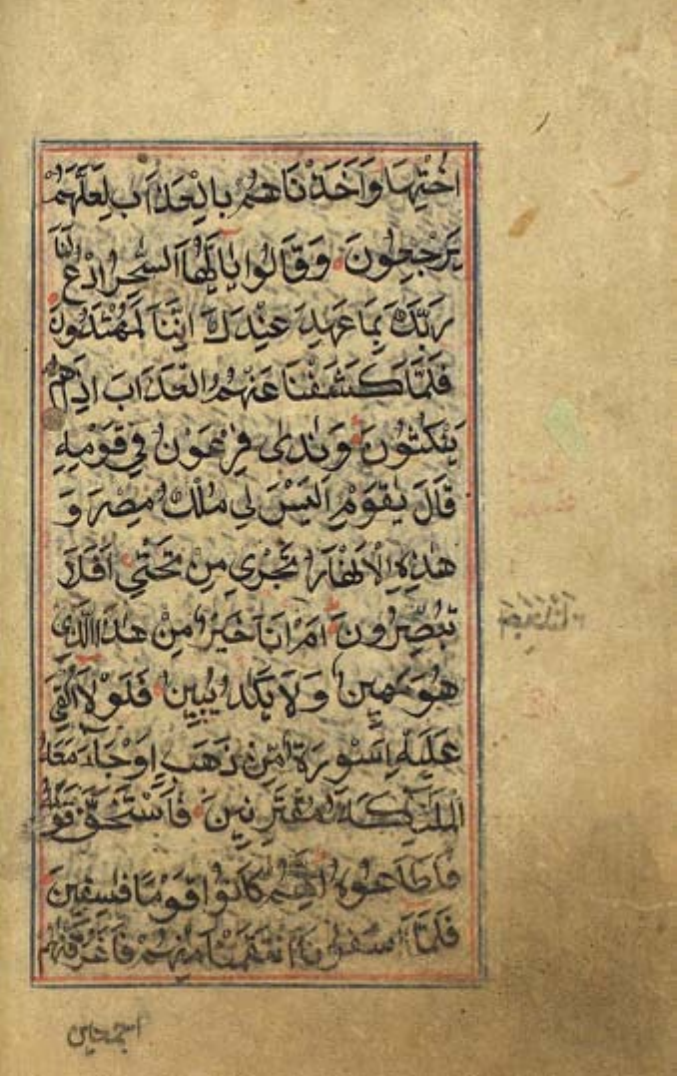 اُخْتِهَا وَاَخَذْنَاهُمْ بِالْعَذَابِ لَعَلَّهُمْ
يَرْجِعُونَ وَقَالُوا يٰاَيُّهَا السّٰحِرُ ادْعُ لَنَا
رَبَّكَ بِمَا عَهِدَ عِنْدَكَ اِنَّنَا لَمُهْتَدُونَ
فَلَمَّا كَشَفْنَا عَنْهُمُ الْعَذَابَ اِذَا هُمْ
يَنْكُثُونَ وَنَادٰى فِرْعَوْنُ فِي قَوْمِهِ
قَالَ يٰقَوْمِ اَلَيْسَ لِي مُلْكُ مِصْرَ وَ
هٰذِهِ الْاَنْهَارُ تَجْرِي مِنْ تَحْتِي اَفَلَا
تُبْصِرُونَ اَمْ اَنَا خَيْرٌ مِنْ هٰذَا الَّذِي
هُوَ مَهِينٌ وَلَا يَكَادُ يُبِينُ فَلَوْلَا اُلْقِيَ
عَلَيْهِ اَسْوِرَةٌ مِنْ ذَهَبٍ اَوْ جَاءَ مَعَهُ
الْمَلٰئِكَةُ مُقْتَرِنِينَ فَاسْتَخَفَّ قَوْمَهُ
فَاَطَاعُوهُ اِنَّهُمْ كَانُوا قَوْمًا فٰسِقِينَ
فَلَمَّا اٰسَفُونَا انْتَقَمْنَا مِنْهُمْ فَاَغْرَقْنٰهُمْ